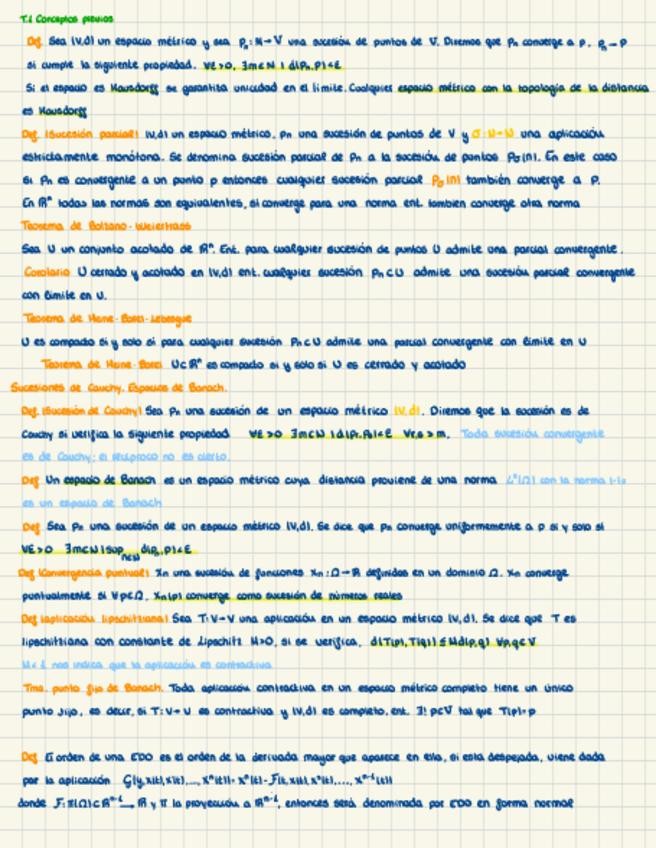 T.1 Conceptos previos
Def. Sea (V,d) un espacio métrico y sea Pn: N→V una sucesión de puntos de V. Diremos que Pn converge a P. Pn→P
si cumple la siguiente propiedad. ∀ε>0, ∃m∈N | d(Pn,P)<ε
Si el espacio es Hausdorff se garantiza unicidad en el límite. Cualquier espacio métrico con la topología de la distancia
es Hausdorff
Def. (Sucesión parcial) (V,d) un espacio métrico, Pn una sucesión de puntos de V y σ:N→N una aplicación
estrictamente monótona. Se denomina sucesión parcial de Pn a la sucesión de puntos Pσ(n). En este caso
si Pn es convergente a un punto p entonces cualquier sucesión parcial Pσ(n) también converge a P.
En Rⁿ todas las normas son equivalentes, si converge para una norma ent. tambien converge otra norma
Teorema de Bolzano-Weierstrass
Sea U un conjunto acotado de Rⁿ. Ent. para cualquier sucesión de puntos U admite una parcial convergente.
Corolario U cerrado y acotado en (V,d) ent. cualquier sucesión Pn⊂U admite una sucesión parcial convergente
con límite en U.
Teorema de Heine-Borel-Lebesgue
U es compacto si y solo si para cualquier sucesión Pn⊂U admite una parcial convergente con límite en U
Teorema de Heine-Borel U⊂Rⁿ es compacto si y solo si U es cerrado y acotado
Sucesiones de Cauchy. Espacios de Banach.
Def. (Sucesión de Cauchy) Sea Pn una sucesión de un espacio métrico (V,d). Diremos que la sucesión es de
Cauchy si verifica la siguiente propiedad ∀ε>0 ∃m∈N | d(Pr,Ps)<ε ∀r,s>m. Toda sucesión convergente
es de Cauchy; el recíproco no es cierto.
Def Un espacio de Banach es un espacio métrico cuya distancia proviene de una norma con la norma
es un espacio de Banach
Def Sea Pn una sucesión de un espacio métrico (V,d). Se dice que Pn converge uniformemente a p si y solo si
∀ε>0 ∃m∈N | sup n∈N d(Pn,P)<ε
Def (Convergencia puntual) Xn una sucesión de funciones Xn:Ω→R definidas en un dominio Ω. Xn converge
puntualmente si ∀p∈Ω, Xn(p) converge como sucesión de números reales
Def (aplicación lipschitziana) Sea T:V→V una aplicación en un espacio métrico (V,d). Se dice que T es
lipschitziana con constante de Lipschitz M>0, si se verifica, d(T(p),T(q))≤Md(p,q) ∀p,q∈V
M<1 nos indica que la aplicación es contractiva
Tma. punto fijo de Banach. Toda aplicación contractiva en un espacio métrico completo tiene un único
punto fijo, es decir, si T:V→V es contractiva y (V,d) es completo, ent. ∃! p∈V tal que T(p)=p
Def El orden de una EDO es el orden de la derivada mayor que aparece en ella, si esta despejada, viene dada
por la aplicación
donde y π la proyección a entonces será denominada por EDO en forma normal